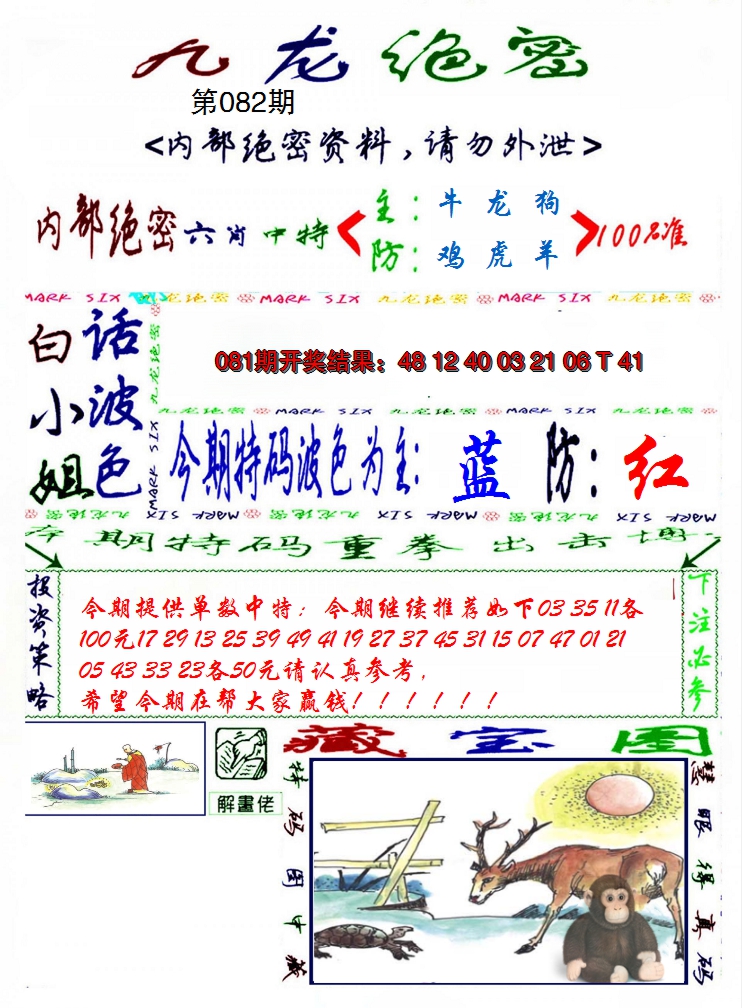 九龙绝密
第082期
<内部绝密资料，请勿外泄>
内部绝密六肖中特
主：牛 龙 狗
防：鸡 虎 羊
100%准
MARK SIX 九龙绝密 MARK SIX 九龙绝密 MARK SIX 九龙绝密
白小姐
话波色
九龙绝密 MARK SIX
081期开奖结果：48 12 40 03 21 06 T 41
九龙绝密 MARK SIX 九龙绝密 MARK SIX 九龙绝密
今期特码波色为主：蓝 防：红
九龙绝密 MARK SIX 九龙绝密 MARK SIX 九龙绝密 MARK SIX
本期特码重拳出击博
投资策略
今期提供单数中特；今期继续推荐如下03 35 11各
100元17 29 13 25 39 49 41 19 27 37 45 31 15 07 47 01 21
05 43 33 23各50元请认真参考，
希望今期在帮大家赢钱！！！！！！
下注必参
解畫佬
藏宝图
特码图中藏
慧眼得真码